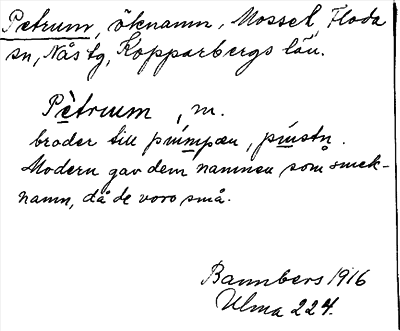 Petrum, öknamn, Mossel, Floda
sn, Nås tg, Kopparbergs län.
Pètrum, m.
broder till pímpæn, pínstn.
Modern gav dem namnen som smek-
namn, då de voro små.
Bannbers 1916
Ulma 224.